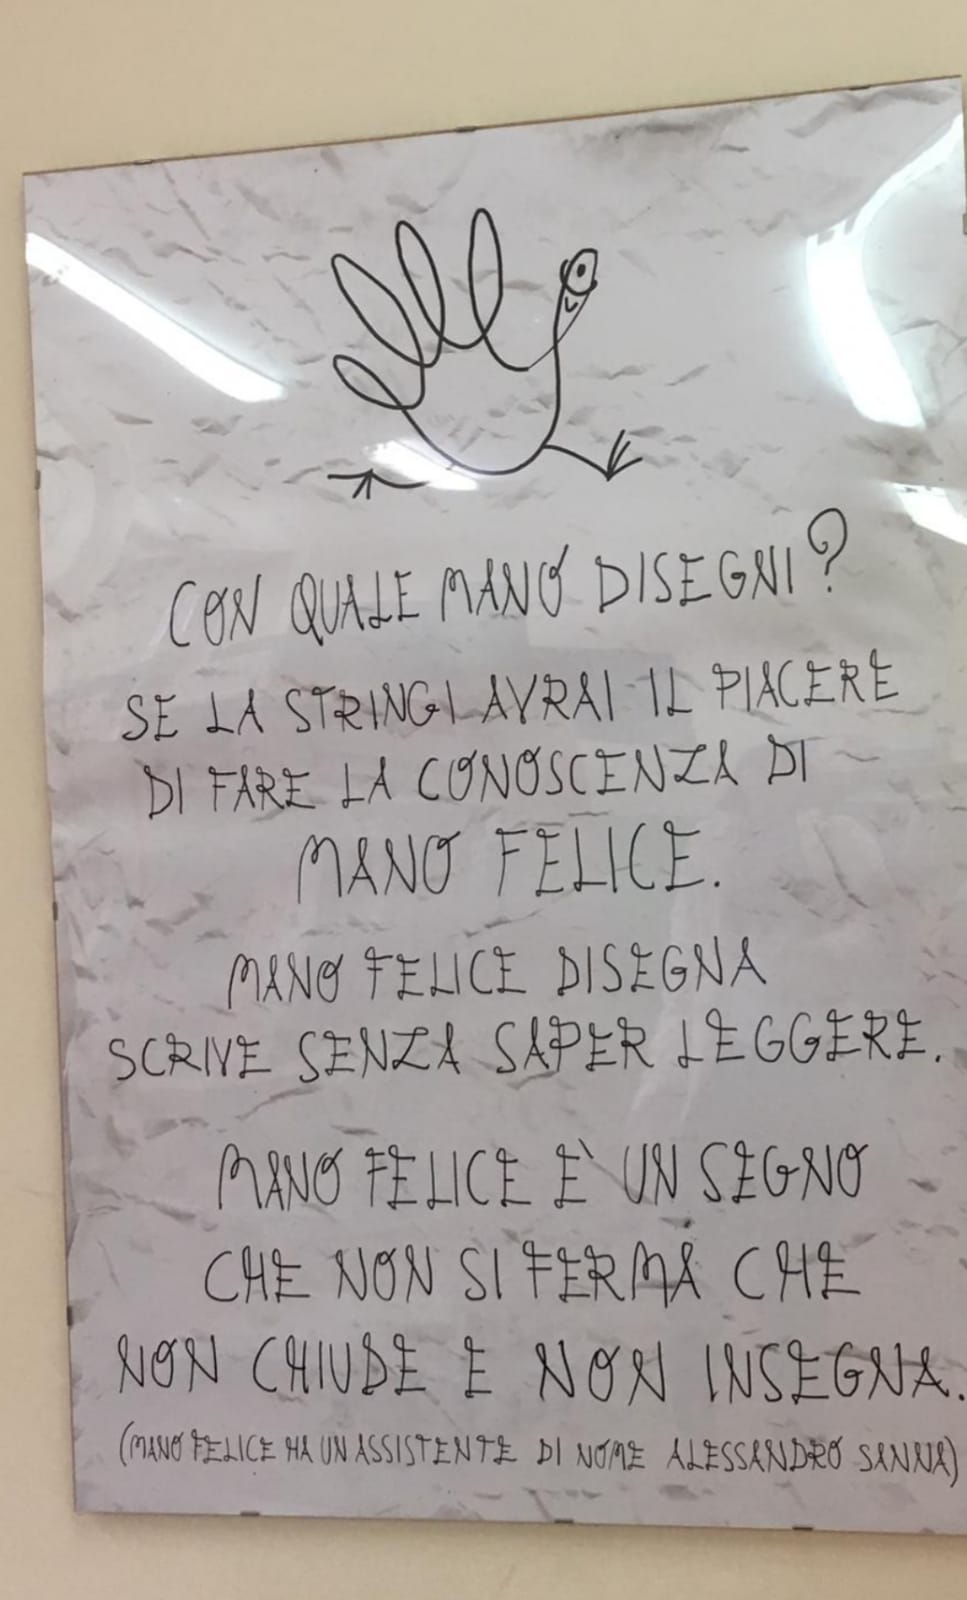 CON QUALE MANO DISEGNI?
SE LA STRINGI AVRAI IL PIACERE
DI FARE LA CONOSCENZA DI
MANO FELICE.
MANO FELICE DISEGNA
SCRIVE SENZA SAPER LEGGERE.
MANO FELICE E' UN SEGNO
CHE NON SI FERMA CHE
NON CHIUDE E NON INSEGNA.
(MANO FELICE HA UN ASSISTENTE DI NOME ALESSANDRO SANNA)